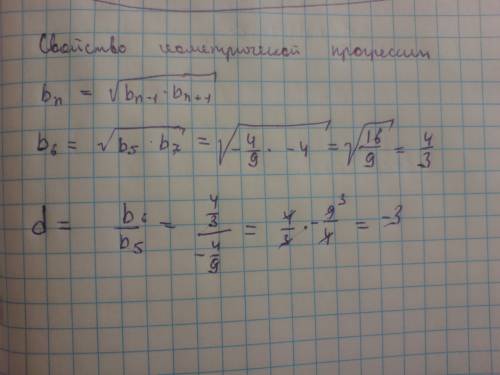 Свойство геометрической прогрессии
bₙ = √(bₙ₋₁ · bₙ₊₁)
b₆ = √(b₅ · b₇) = √(-4/9 · -4) = √(16/9) = 4/3
d = b₆/b₅ = (4/3)/(-4/9) = 4/3 · -9³/4 = -3